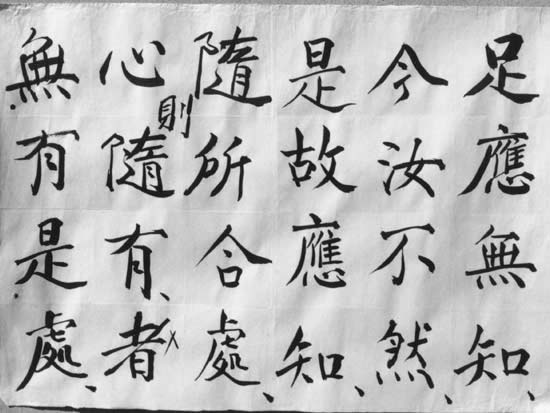 足應無知、
今汝不然、
是故應知、
隨所合處、
心則隨有、者
無有是處、